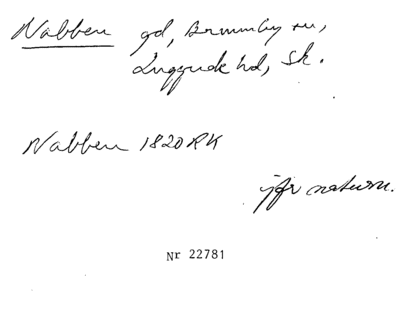 Nabben gd, Brunnby sn,
Luggude hd, Sk.
Nabben 1820 RK
jfr naturn.
Nr 22781